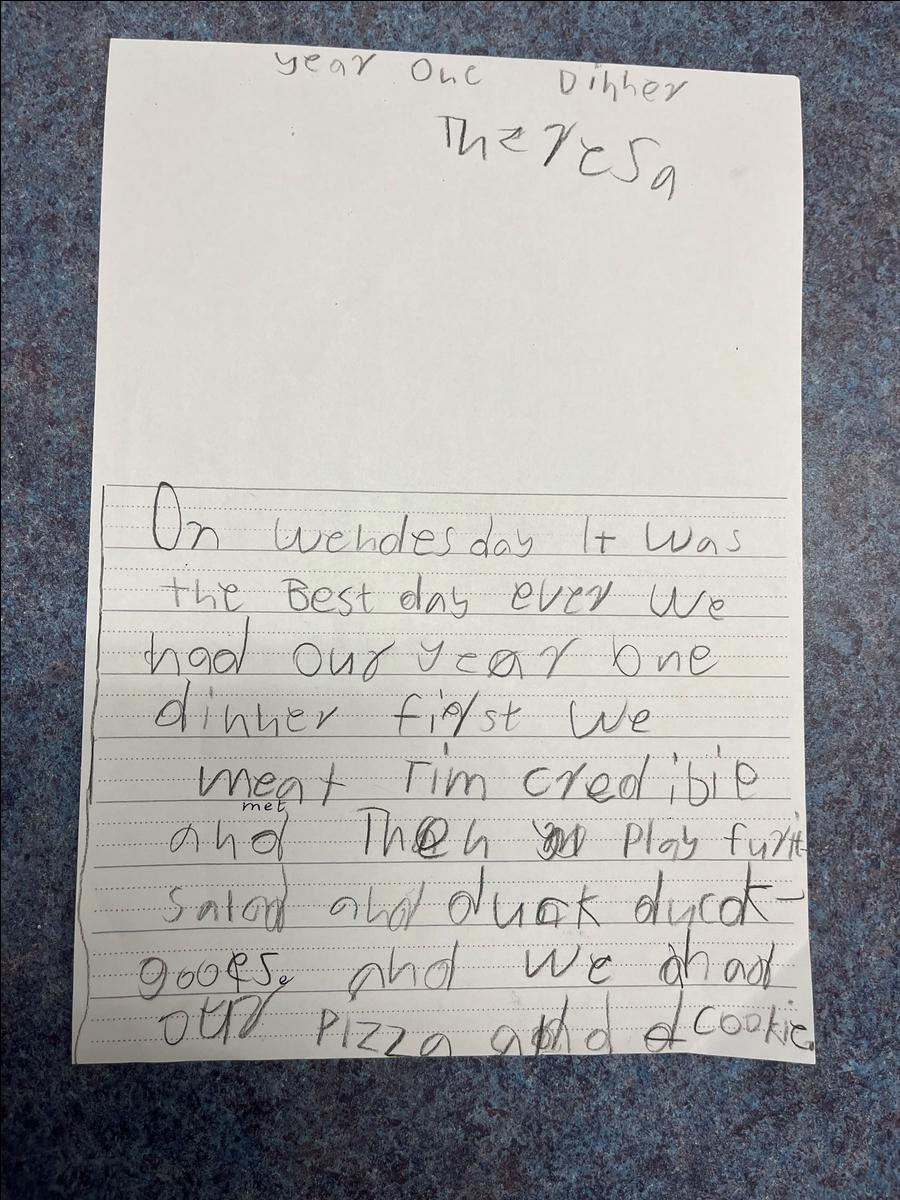 year One Dinner
Theresa
On wendesday It was
the Best day ever We
had our year one
dinner first We
meat Tim credible
met
and Then Play furit
Salad and duck duck-
gooes. and We had
our Pizza and cookie